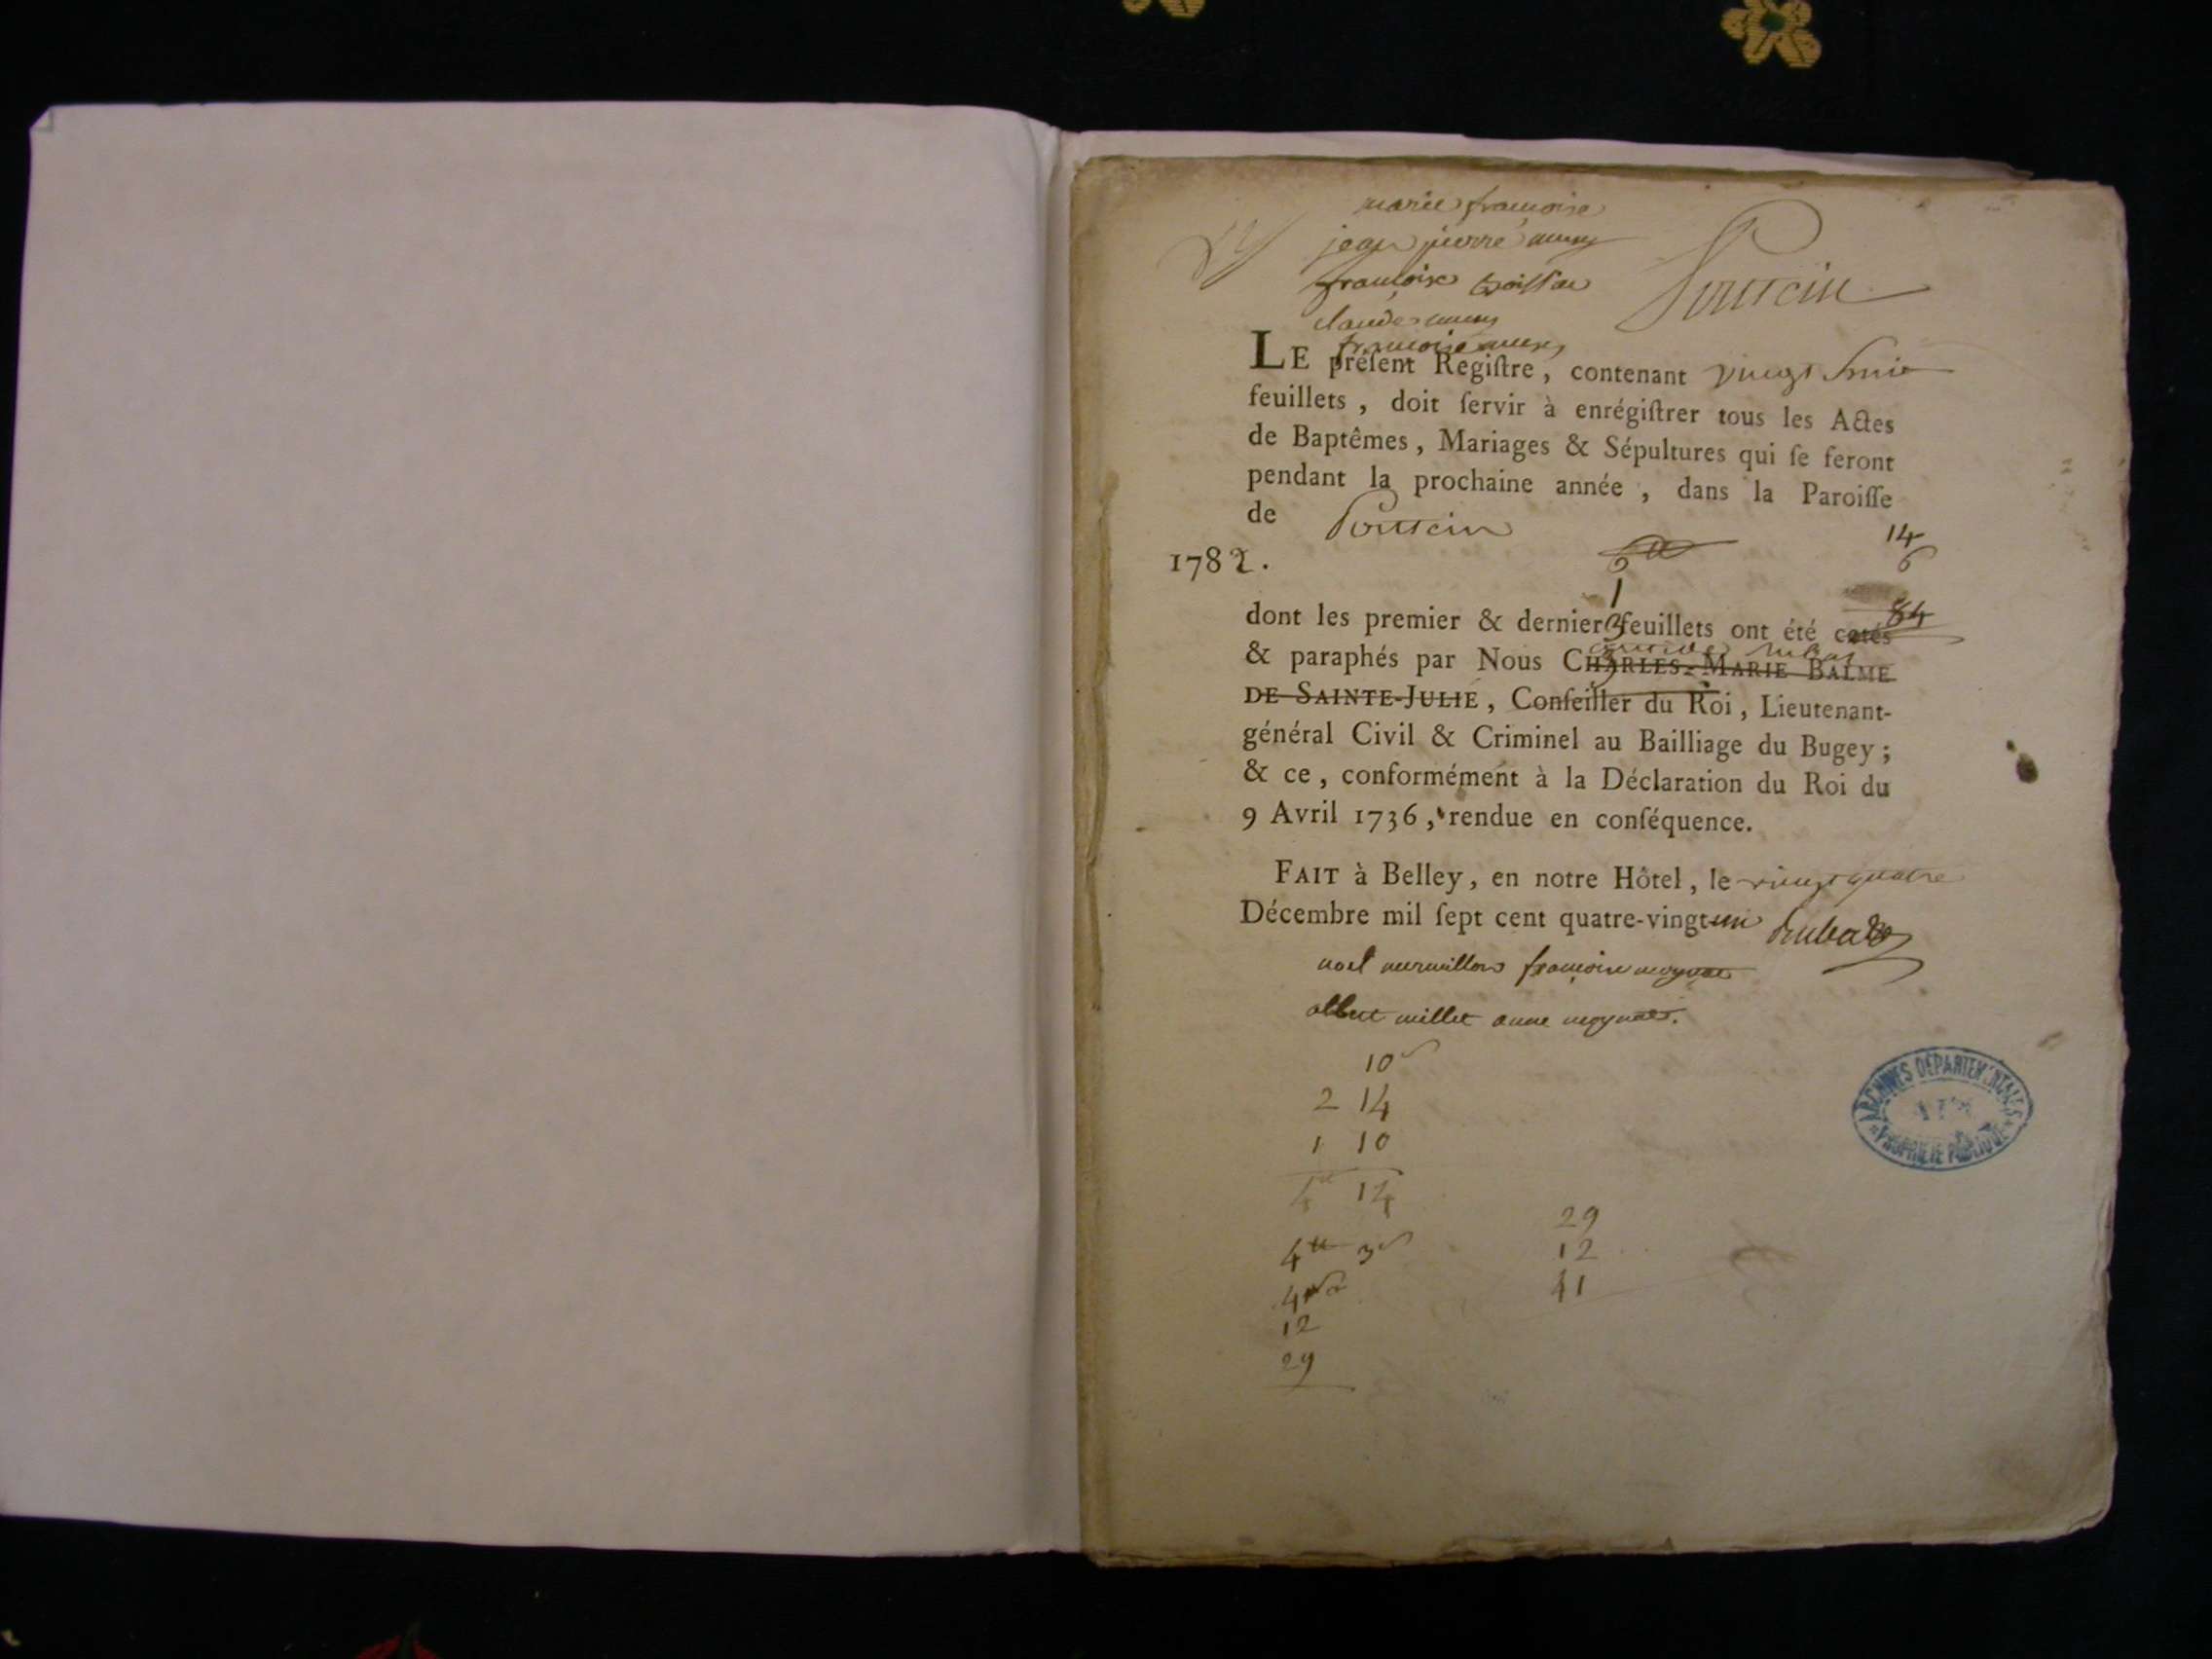 marie francoise
jean pierre
francoise
claude
francoise
Poncin
LE préſent Regiſtre, contenant vingt
feuillets, doit ſervir à enrégiſtrer tous les Actes
de Baptêmes, Mariages & Sépultures qui ſe feront
pendant la prochaine année, dans la Paroiſſe
de Poncin
14
6
1782.
84
dont les premier & dernier feuillets ont été cotés
& paraphés par Nous CHARLES-MARIE BALME
DE SAINTE-JULIE, Conſeiller du Roi, Lieutenant-
général Civil & Criminel au Bailliage du Bugey;
& ce, conformément à la Déclaration du Roi du
9 Avril 1736, rendue en conſéquence.
FAIT à Belley, en notre Hôtel, le vingt quatre
Décembre mil ſept cent quatre-vingt un
noel francoise
albert millet anne
10
2 14
1 10
4 14
4 3
4
12
29
29
12
41
ARCHIVES DEPARTEMENTALES
AIN
PROPRIETE PUBLIQUE